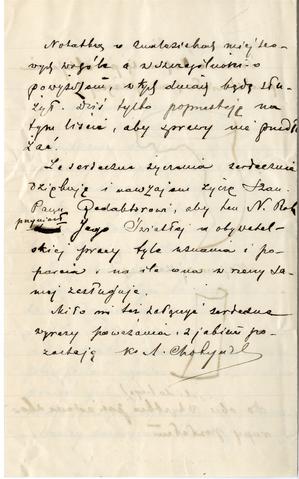 Notatkę o znalezieniach miejsco-
wych wogóle a w szczególności o
powyższem, w tych dniach będę słu-
żył. Dziś tylko poprzestaję na
tym liście, aby sprawy nie przedłu-
żać.
Za serdeczne życzenia serdecznie
dziękuję i nawzajem życzę Szan.
Panu Redaktorowi, aby ten N. Rok
przyniósł Jego Światłej w obywatel-
skiej pracy tyle uznania i po-
parcia i na ile ona w rzeczy sa-
mej zasługuje.
Miło mi też załączyć serdeczne
wyrazy poważania, z jakiem po-
zostaję ks. A.